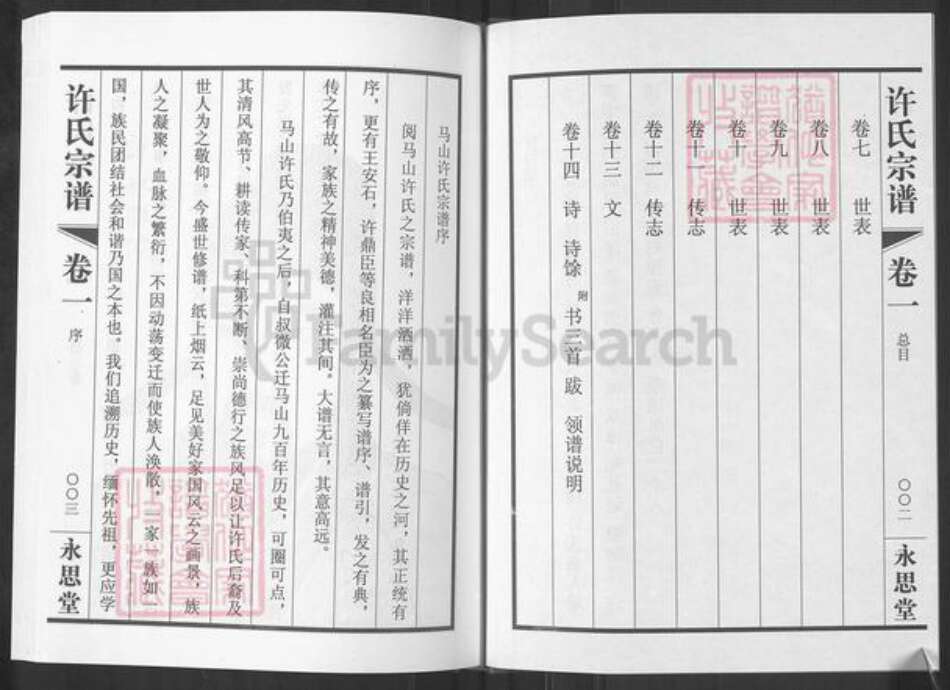 许氏宗谱 卷一 总目 〇〇二 永思堂
卷七 世表
卷八 世表
卷九 世表
卷十 世表
卷十一 传志
卷十二 传志
卷十三 文
卷十四 诗 诗馀 附 书三首 跋 领谱说明
马山许氏宗谱序
阅马山许氏之宗谱，洋洋洒洒，犹倘佯在历史之河，其正统有
序，更有王安石，许鼎臣等良相名臣为之纂写谱序、谱引，发之有典，
传之有故，家族之精神美德，灌注其间。大谱无言，其意高远。
马山许氏乃伯夷之后，自叔微公迁马山九百年历史，可圈可点，
其清风高节、耕读传家、科第不断、崇尚德行之族风足以让许氏后裔及
世人为之敬仰。今盛世修谱，纸上烟云，足见美好家国风云之画景，族
人之凝聚，血脉之繁衍，不因动荡变迁而使族人涣散，一家一族如一
国，族民团结社会和谐乃国之本也。我们追溯历史，缅怀先祖，更应学
许氏宗谱 卷一 序 〇〇三 永思堂
FamilySearch